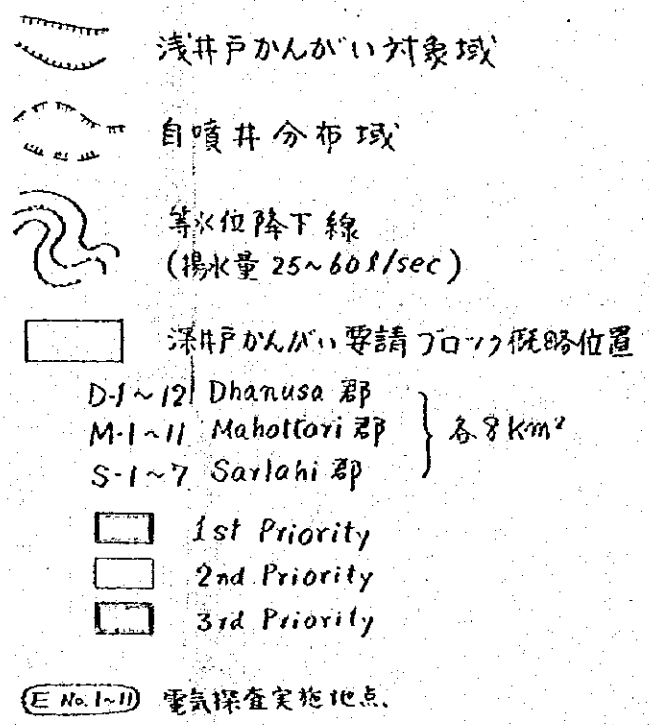 浅井戸かんがい対象域
自噴井分布域
等水位降下線
(揚水量 25~60l/sec)
深井戸かんがい要請ブロック概略位置
D-1~12 Dhanusa 郡
M-1~11 Mahottari 郡
S-1~7 Sarlahi 郡
各8km²
1st Priority
2nd Priority
3rd Priority
E No.1~11 電気探査実施地点.